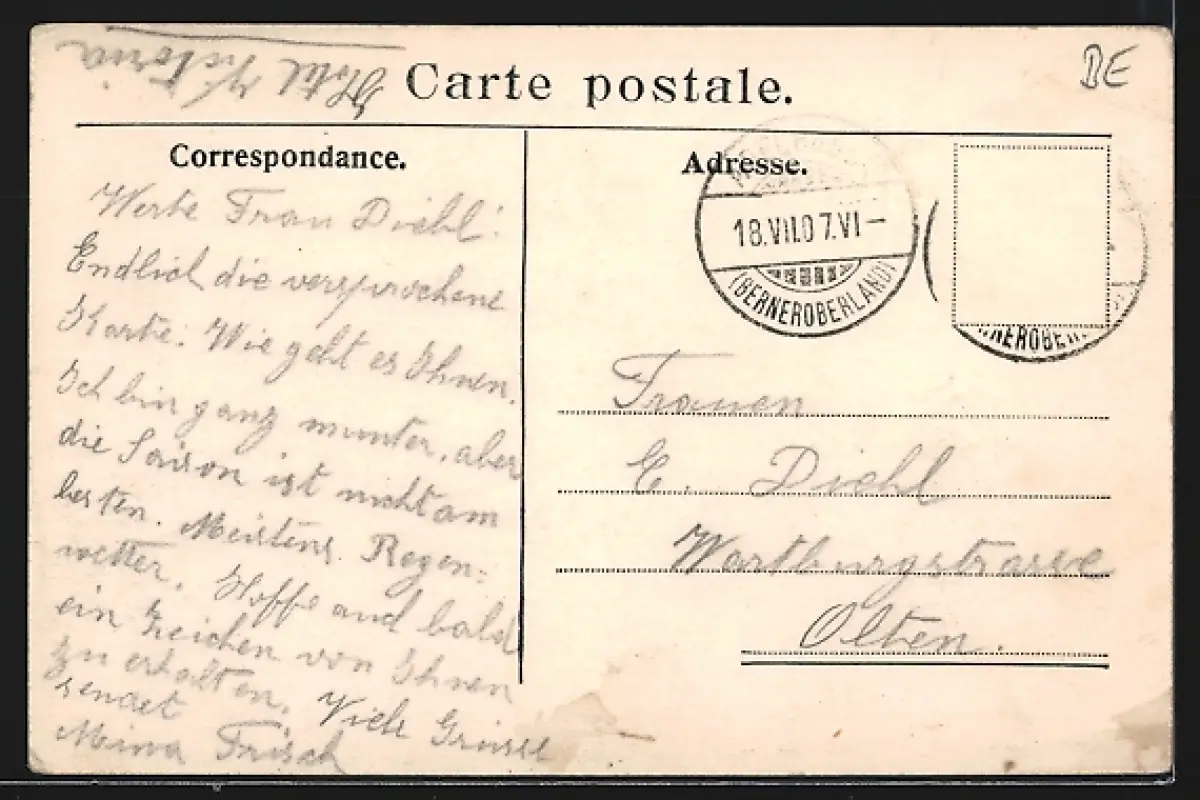 Hotel Victoria
Carte postale.
BE
Correspondance.
Adresse.
Werte Frau Diehl!
Endlich die versprochene
Karte. Wie geht es Ihnen.
Ich bin ganz munter, aber
die Saison ist nicht am
besten. Meistens Regen=
wetter. Hoffe auch bald
ein Zeichen von Ihnen
zu erhalten. Viele Grüsse
sendet
Mina Frisch
18.VII.07.VI-
(BERNEROBERLAND)
NEROBER
Frauen
E. Diehl
Wartburgstrasse
Olten.